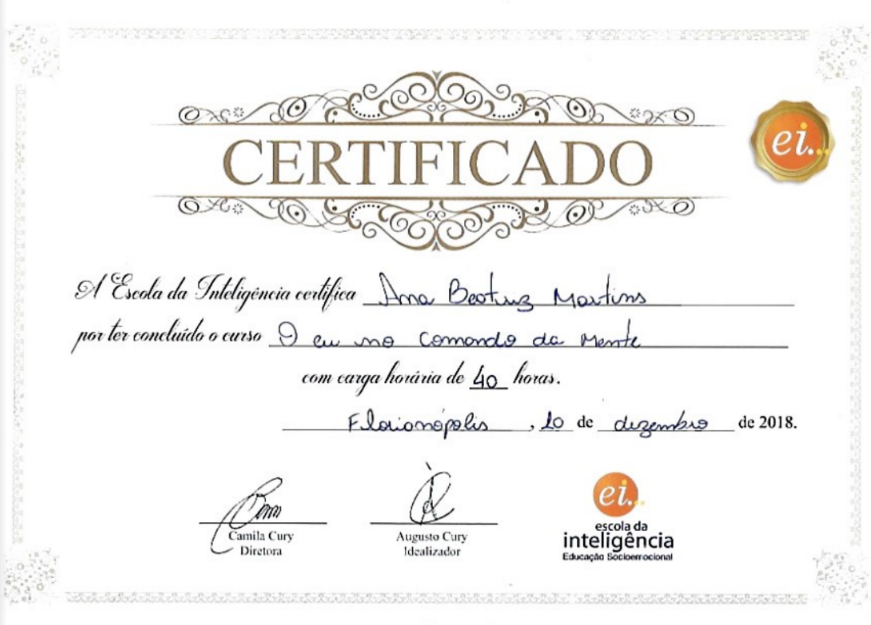 ei...
CERTIFICADO
A Escola da Inteligência certifica Ana Beatriz Martins
por ter concluído o curso O eu no Comando da Mente
com carga horária de 40 horas.
Florianópolis, 10 de dezembro de 2018.
Camila Cury
Diretora
Augusto Cury
Idealizador
ei...
escola da
inteligência
Educação Socioemocional